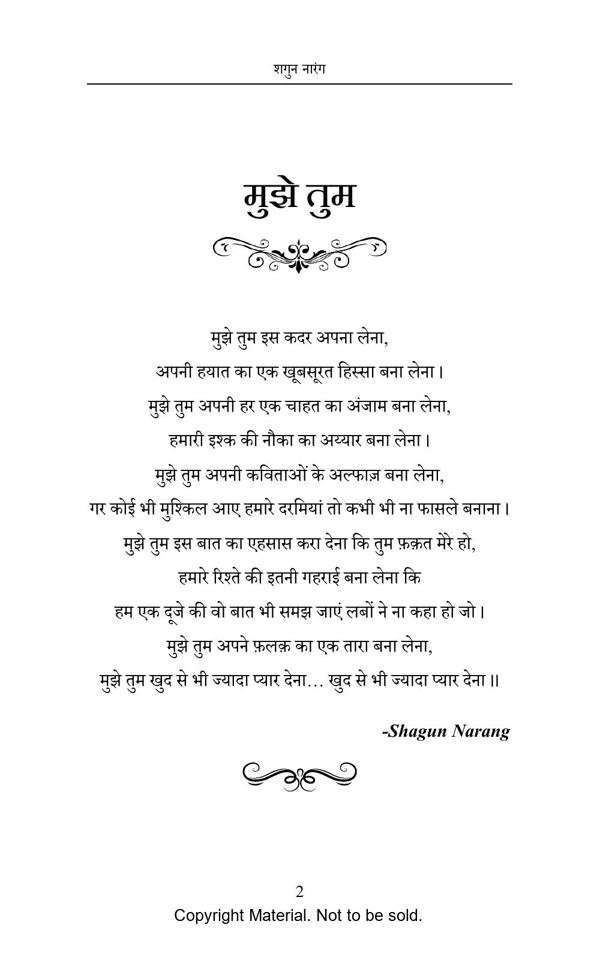 शगुन नारंग
मुझे तुम
मुझे तुम इस कदर अपना लेना,
अपनी हयात का एक खूबसूरत हिस्सा बना लेना।
मुझे तुम अपनी हर एक चाहत का अंजाम बना लेना,
हमारी इश्क की नौका का अय्यार बना लेना।
मुझे तुम अपनी कविताओं के अल्फाज़ बना लेना,
गर कोई भी मुश्किल आए हमारे दरमियां तो कभी भी ना फासले बनाना।
मुझे तुम इस बात का एहसास करा देना कि तुम फ़क़त मेरे हो,
हमारे रिश्ते की इतनी गहराई बना लेना कि
हम एक दूजे की वो बात भी समझ जाएं लबों ने ना कहा हो जो।
मुझे तुम अपने फ़लक़ का एक तारा बना लेना,
मुझे तुम खुद से भी ज्यादा प्यार देना... खुद से भी ज्यादा प्यार देना॥
-Shagun Narang
2
Copyright Material. Not to be sold.